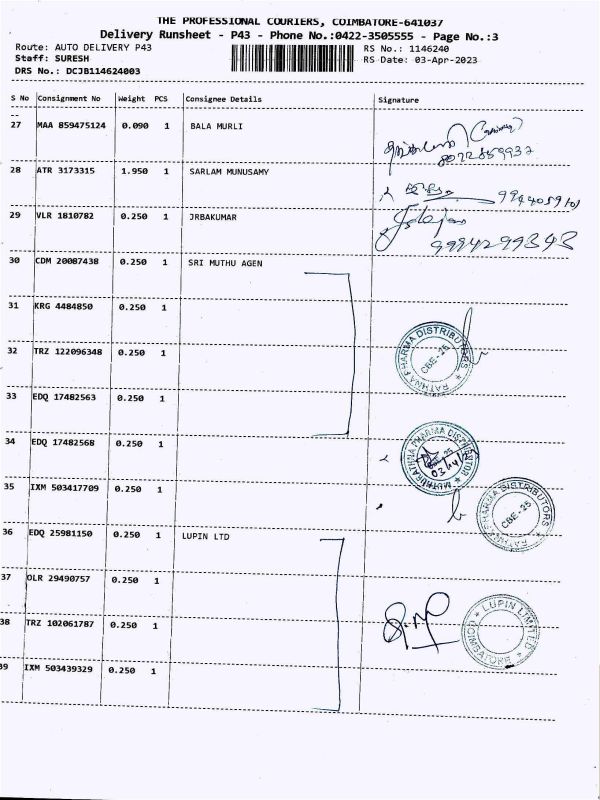 THE PROFESSIONAL COURIERS, COIMBATORE-641037
Delivery Runsheet - P43 - Phone No.:0422-3505555 - Page No.:3
Route: AUTO DELIVERY P43
RS No.: 1146240
Staff: SURESH
RS Date: 03-Apr-2023
DRS No.: DCJB114624003
S No Consignment No Weight PCS Consignee Details Signature
--
27 MAA 859475124 0.090 1 BALA MURLI
28 ATR 3173315 1.950 1 SARLAM MUNUSAMY
29 VLR 1810782 0.250 1 JRBAKUMAR
9994299343
30 CDM 20087438 0.250 1 SRI MUTHU AGEN
31 KRG 4484850 0.250 1
32 TRZ 122096348 0.250 1
RATHNA PHARMA DISTRIBUTORS
CBE-25
33 EDQ 17482563 0.250 1
34 EDQ 17482568 0.250 1
MUTHURATHNA PHARMA DISTRIBUTOR
35 IXM 503417709 0.250 1
RATHNA PHARMA DISTRIBUTORS
CBE-25
36 EDQ 25981150 0.250 1 LUPIN LTD
37 OLR 29490757 0.250 1
38 TRZ 102061787 0.250 1
LUPIN LIMITED
COIMBATORE
39 IXM 503439329 0.250 1